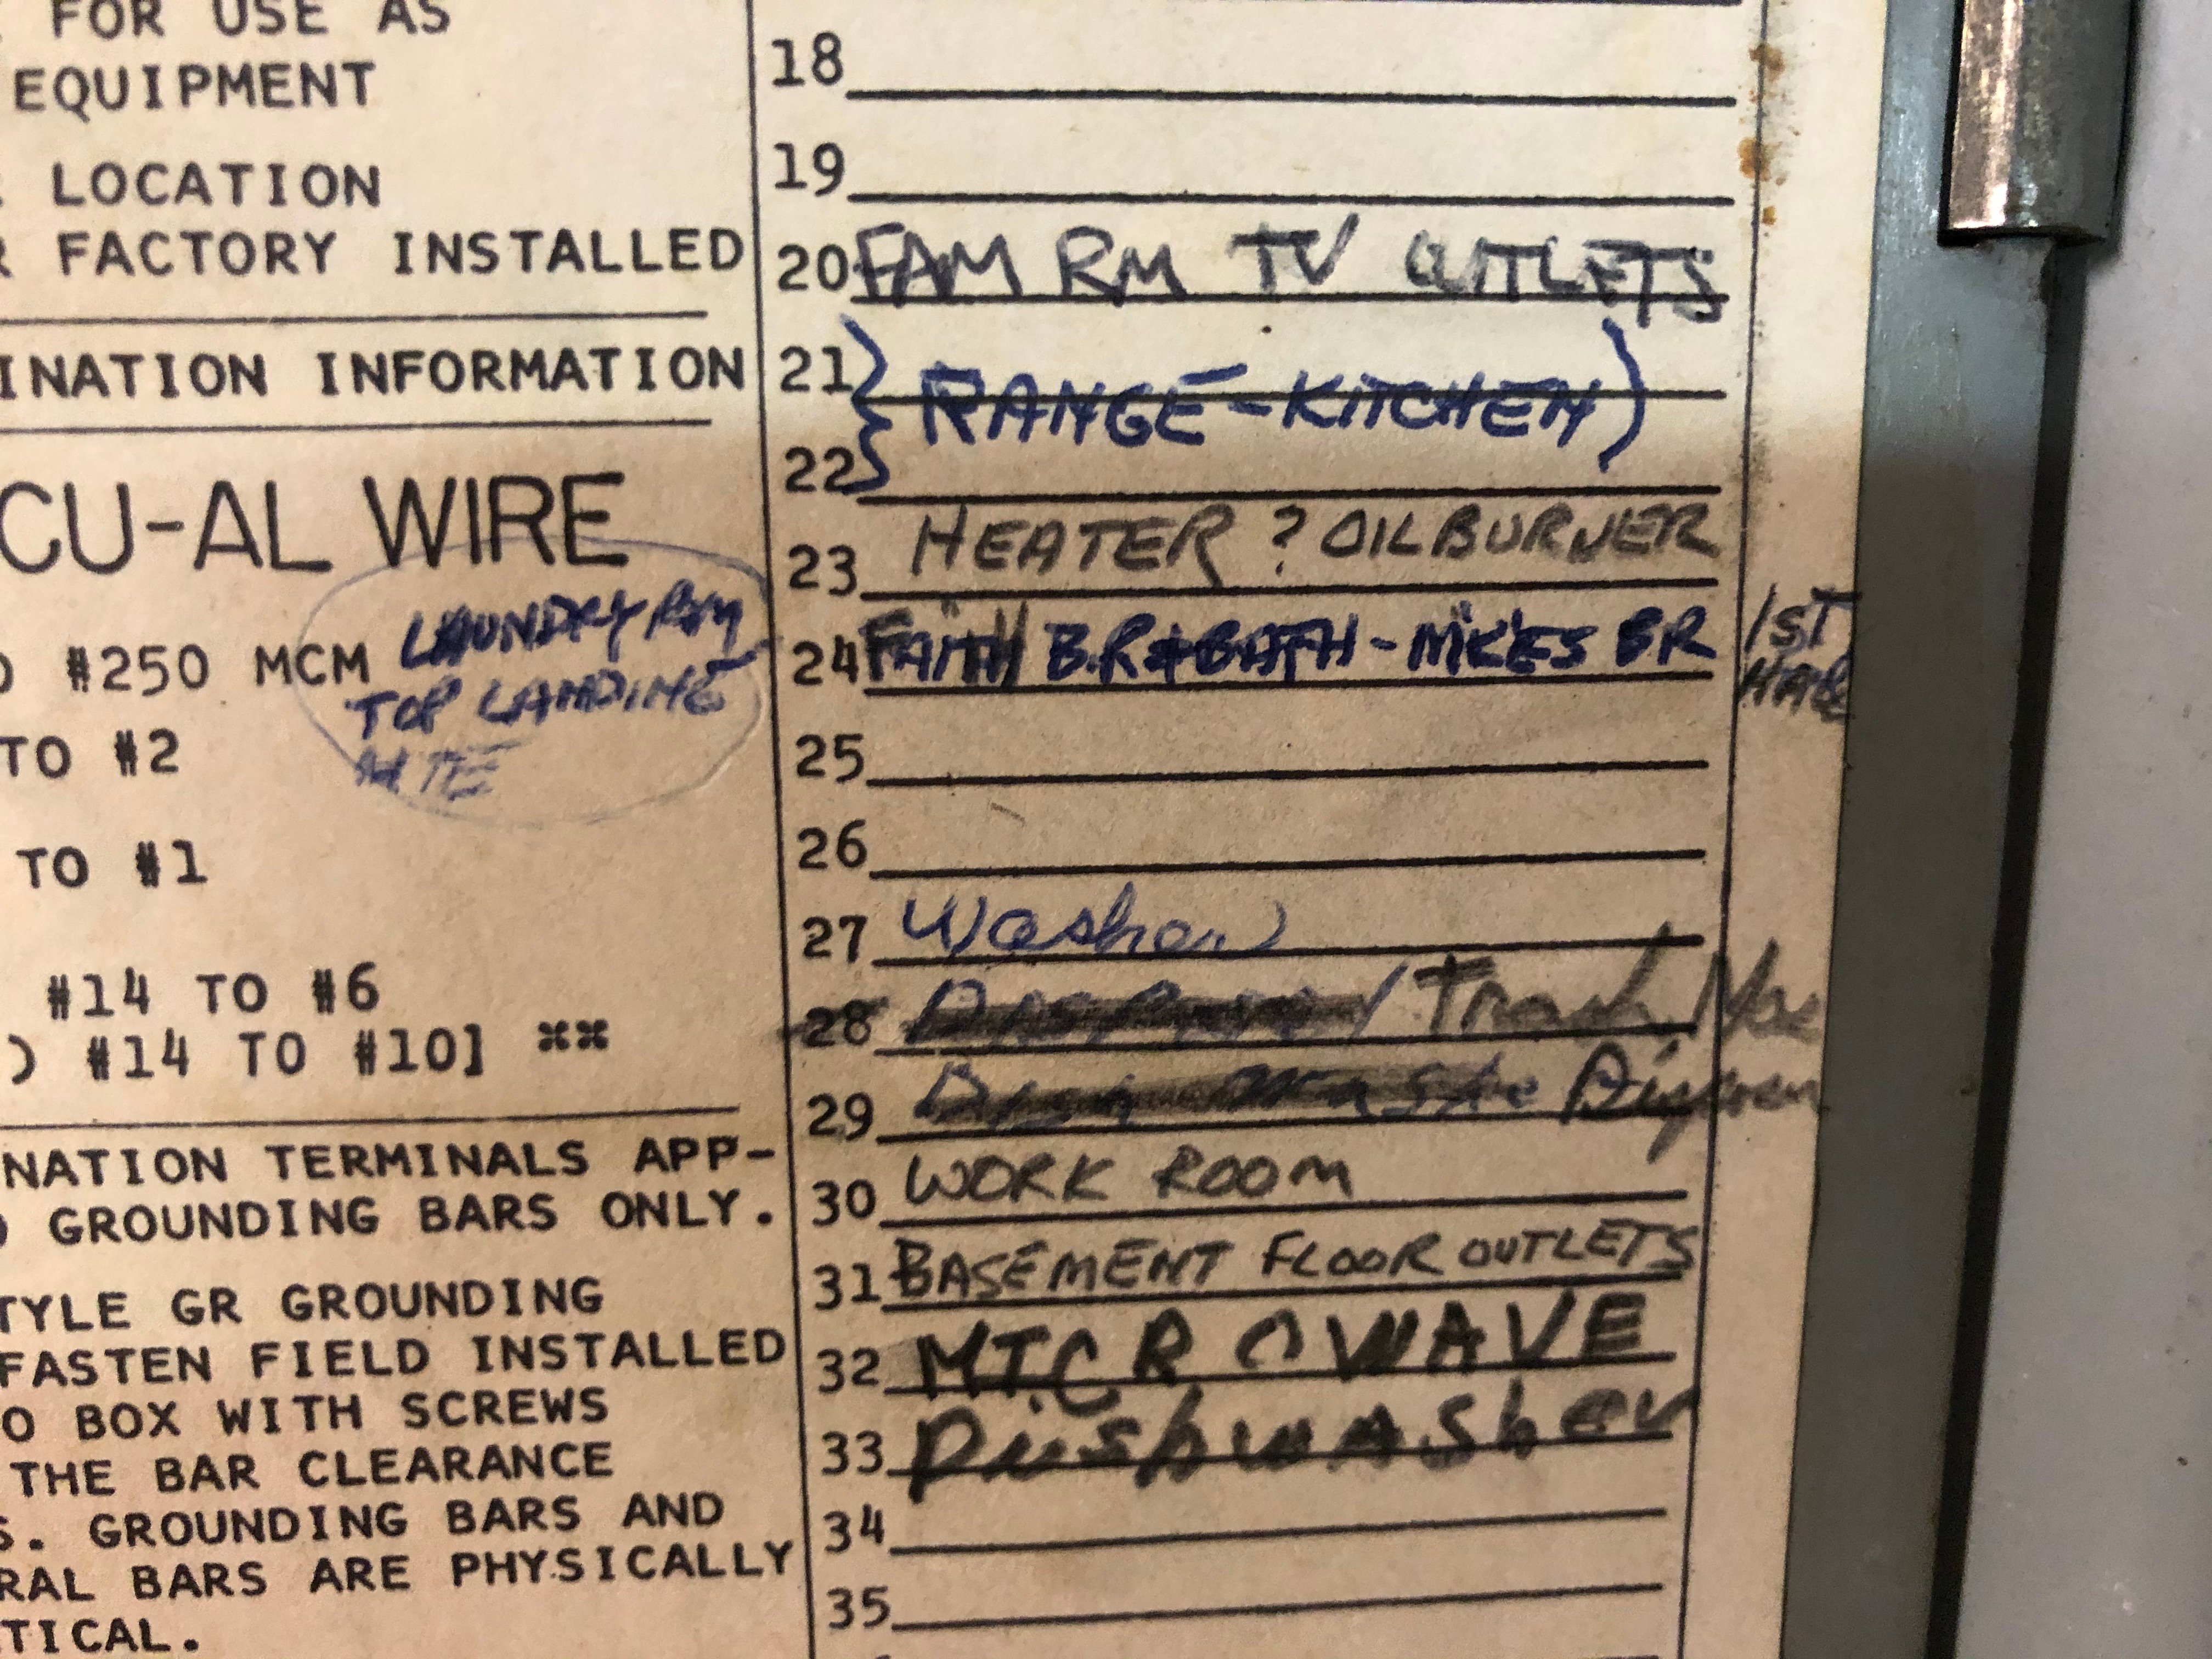 FOR USE AS
EQUIPMENT
LOCATION
FACTORY INSTALLED
INATION INFORMATION
CU-AL WIRE
LAUNDRY RM
#250 MCM
TOP LANDING
TO #2
TO #1
#14 TO #6
) #14 TO #10] **
NATION TERMINALS APP-
GROUNDING BARS ONLY.
TYLE GR GROUNDING
FASTEN FIELD INSTALLED
O BOX WITH SCREWS
THE BAR CLEARANCE
S. GROUNDING BARS AND
RAL BARS ARE PHYSICALLY
TICAL.
18
19
20 FAM RM TV OUTLETS
21
RANGE-KITCHEN
22
23 HEATER ? OIL BURNER
24 FAITH B.R + BATH - MIKE'S BR 1ST
25
26
27 Washer
28 / Trash
29 Dish Washe
30 WORK ROOM
31 BASEMENT FLOOR OUTLETS
32 MICROWAVE
33 Dishwasher
34
35